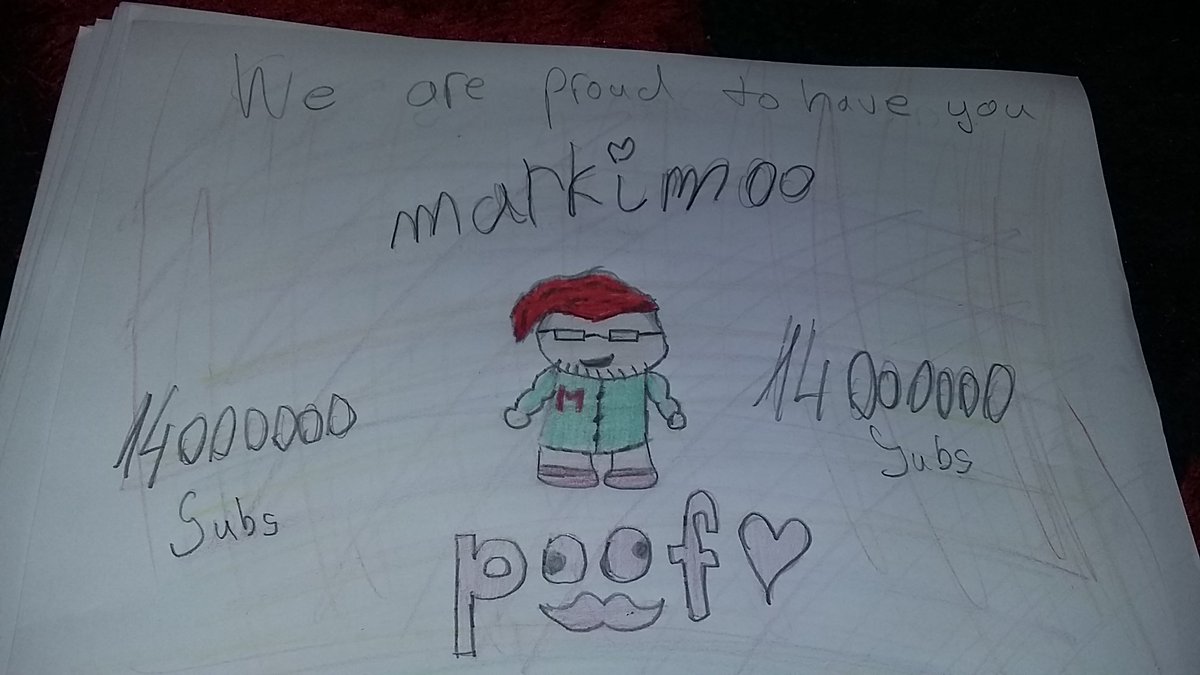 We are proud to have you
markimoo
M
14000000
Subs
14000000
Subs
poof